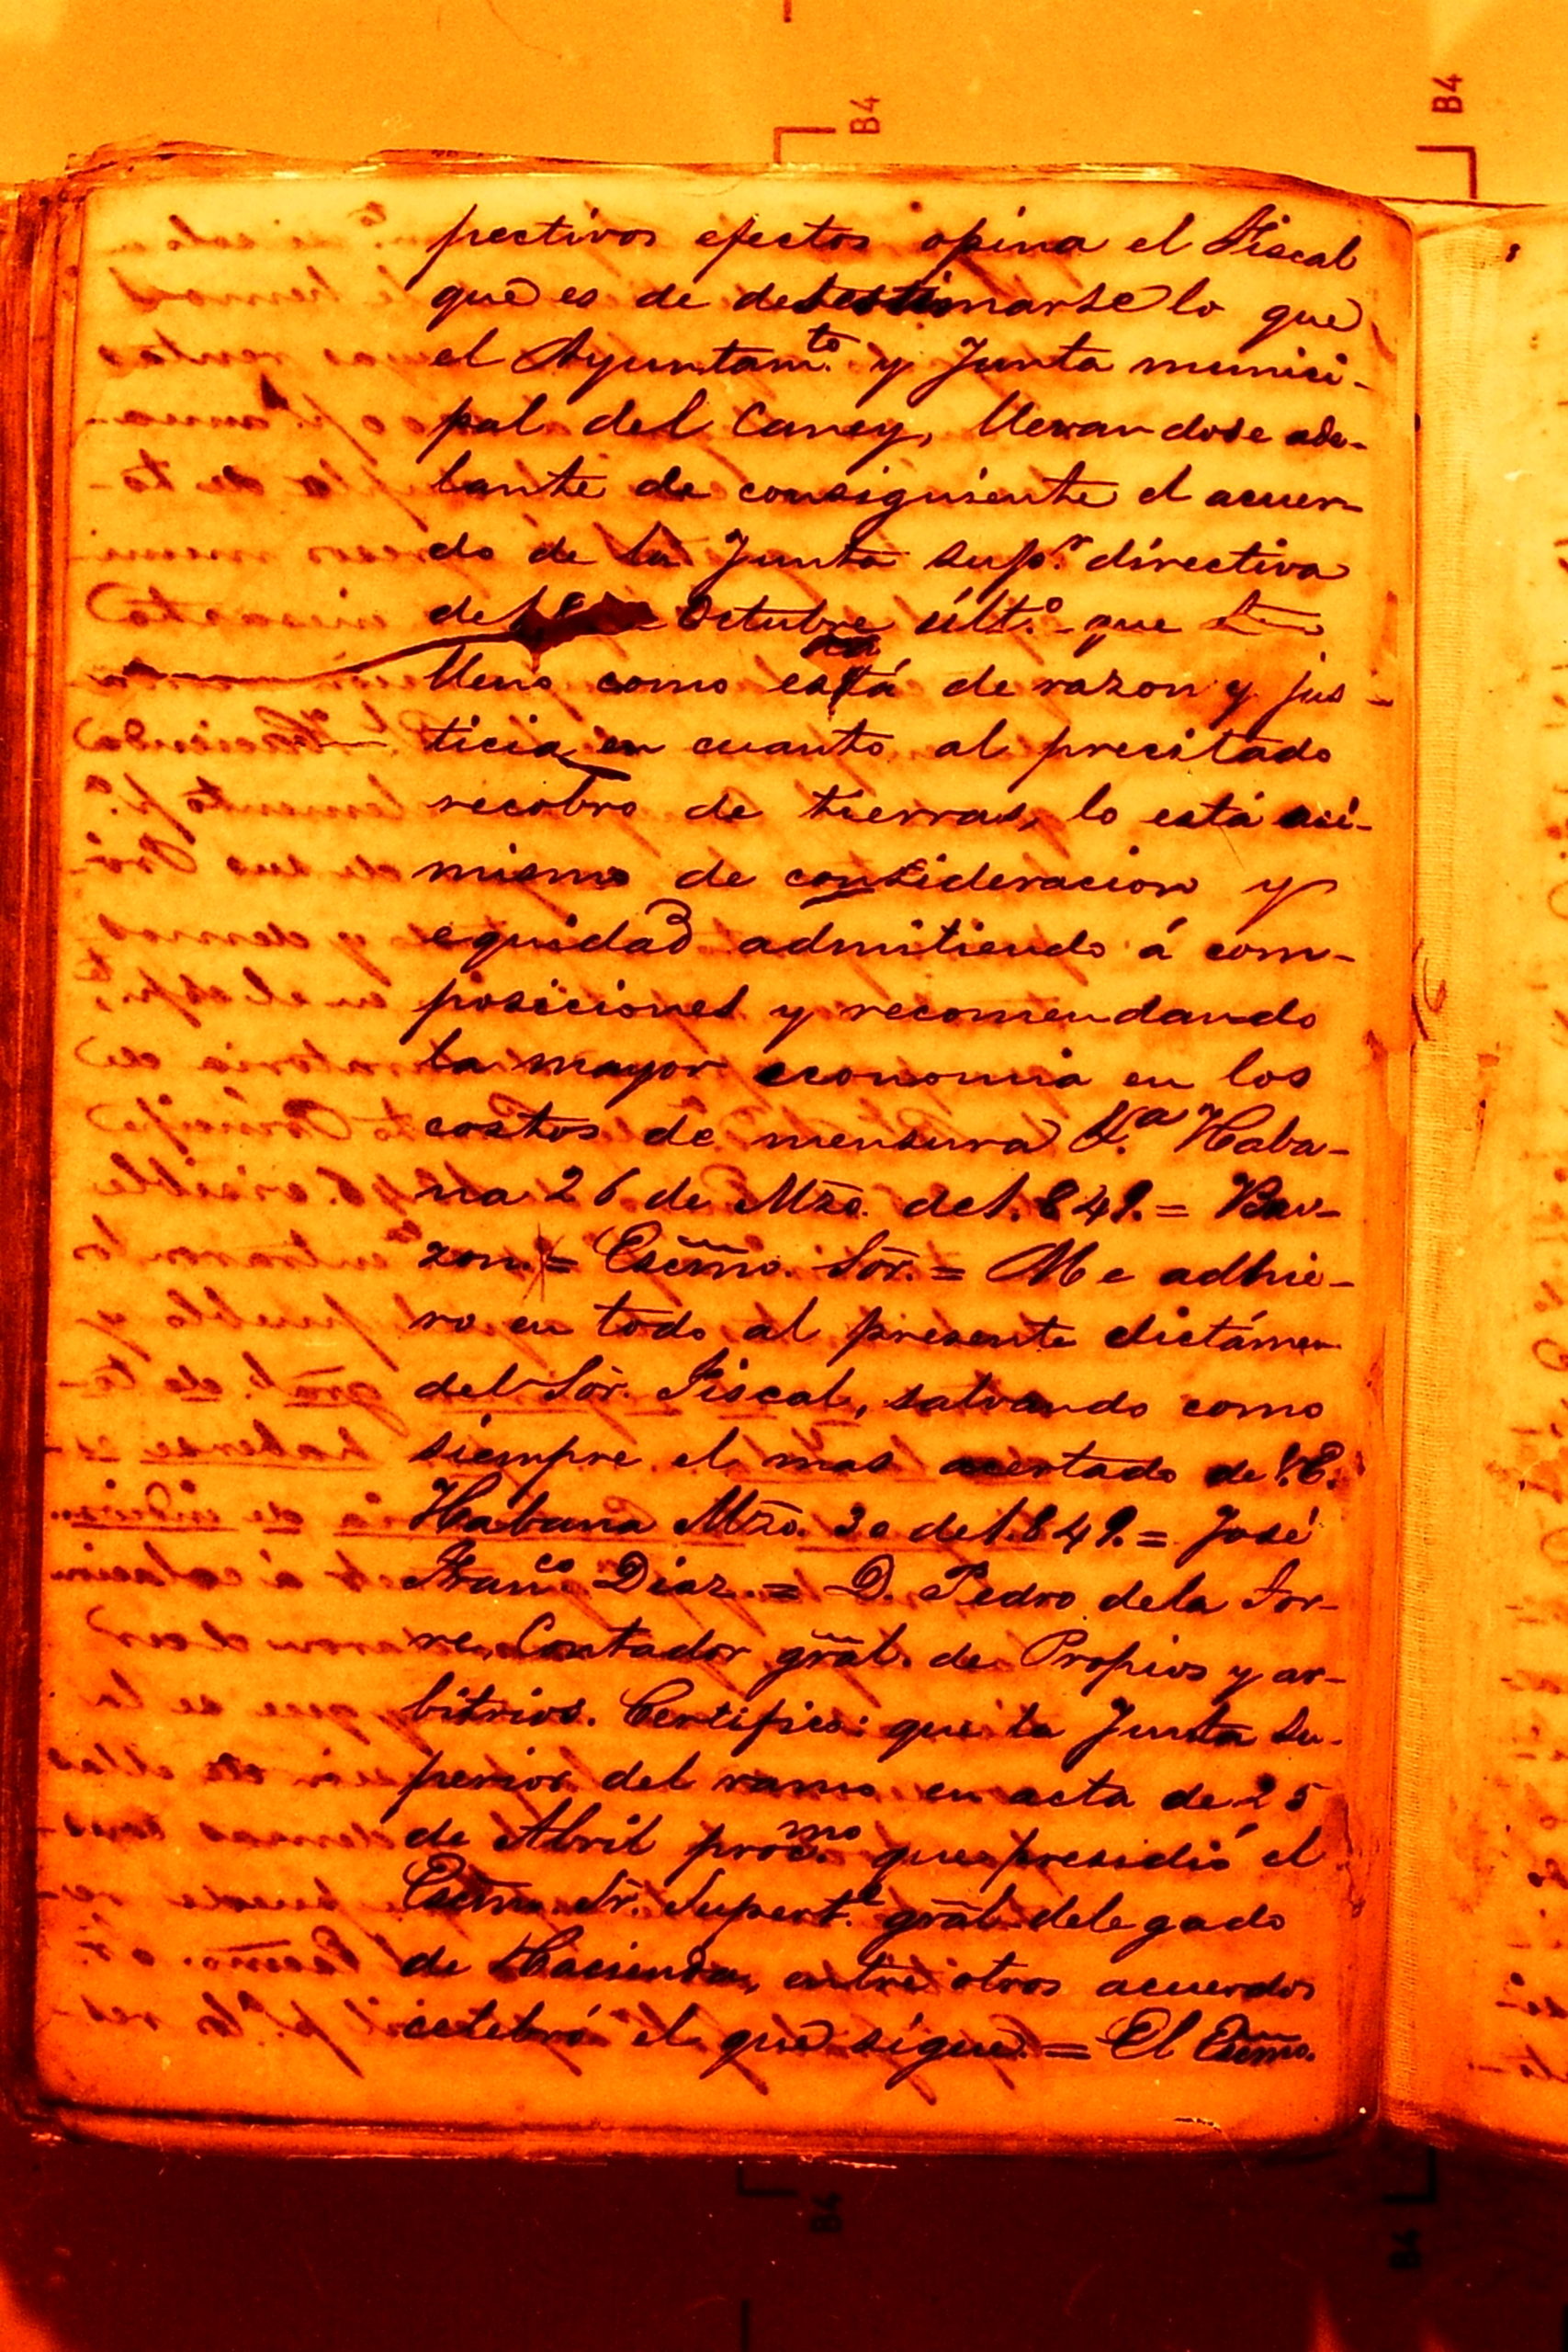 B4
B4
pectivos efectos opina el Fiscal
que es de desestimarse lo que
el Ayuntam.to y Junta munici-
pal del Caney, llevandose ade-
lante de consiguiente el acuer-
do de la Junta sup.r directiva
de Octubre últ.o que
lleno como está de razon y jus-
ticia en cuanto al precitado
recobro de tierras, lo está asi-
mismo de consideracion y
equidad admitiendo á com-
posiciones y recomendando
la mayor economia en los
costos de mensura Haba-
na 26 de Mzo. de 1.849. =
zon. = Escmo. Sor. = Me adhie-
ro en todo al presente dictámen
del Sor. Fiscal, salvando como
siempre el mas acertado de V.E.
Habana Mzo. 30 de 1.849. = José
Fran.co Diaz. = D. Pedro de la Tor-
re, Contador gral. de Propios y ar-
bitrios. Certifico: que la Junta Su-
perior del ramo en acta de 25
de Abril procs.mo que presidió el
Escmo. Sr. Supert.e gral. delegado
de Hacienda, entre otros acuerdos
celebró el que sigue. = El Escmo.
B4
B4